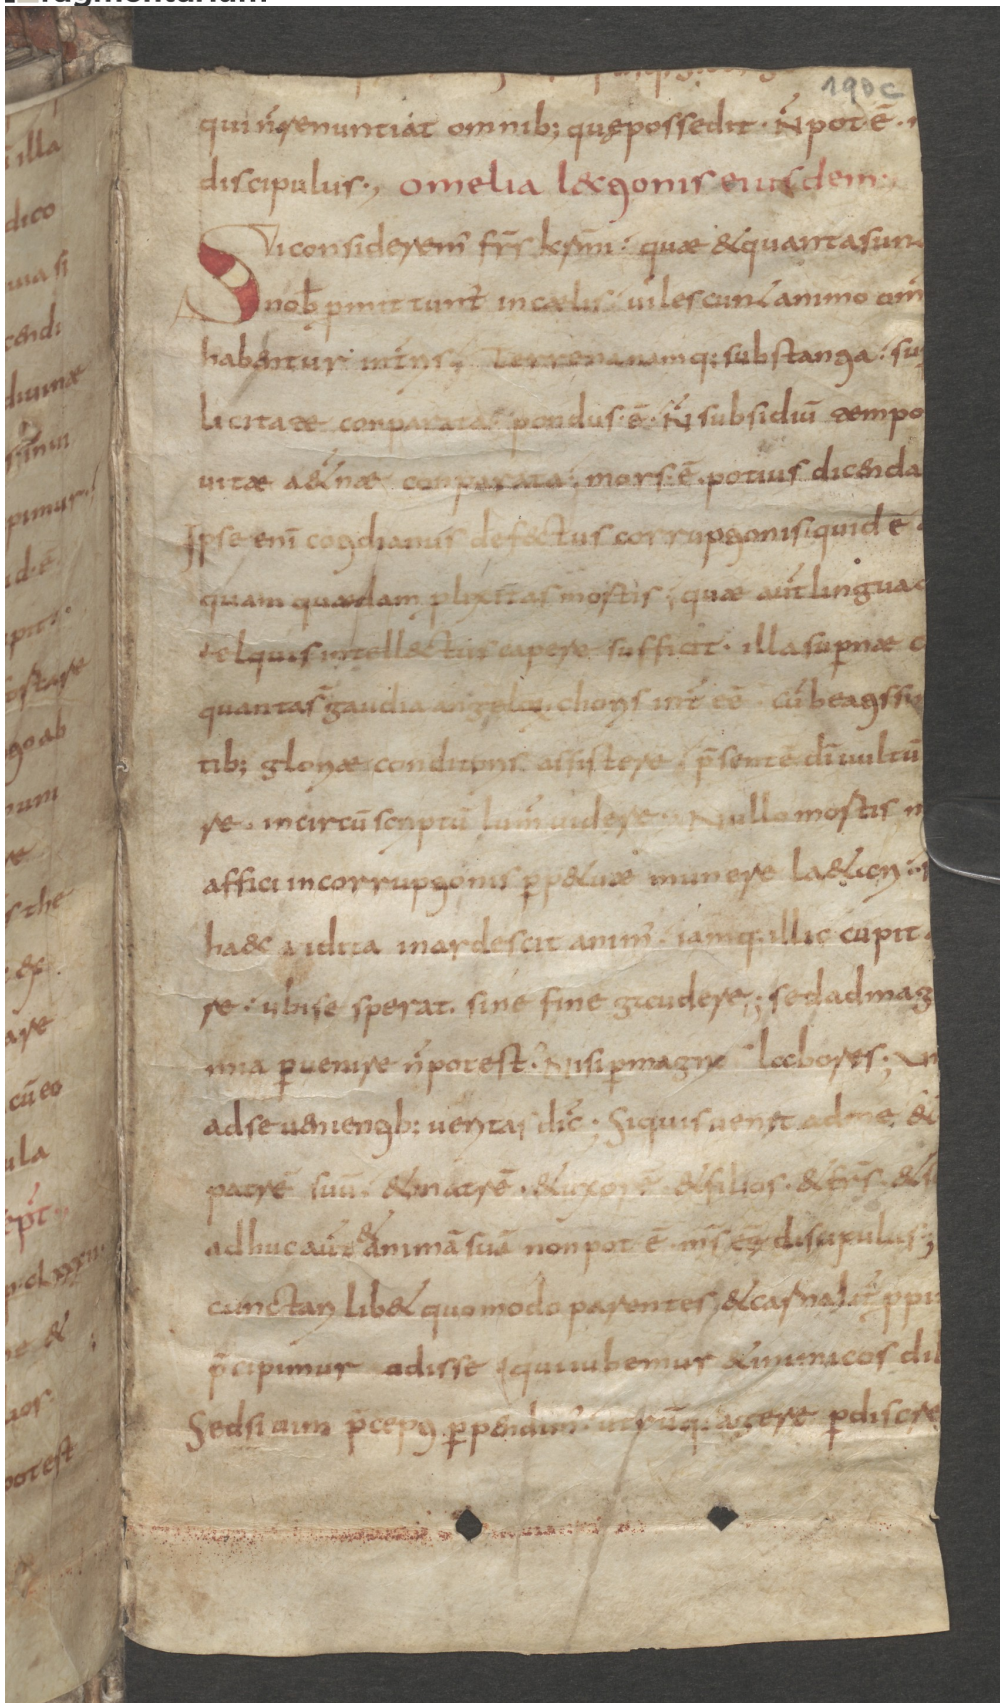 fragmentarium
190c
qui n̄ renuntiat omnib; quę possedit · N̄ pot ē ·
discipulus ·, omelia lectionis eiusdem ·
Si considerem̄ frs̄ krm̄i · quæ & quanta sun
nob̄ pmittunt̄ in cælis · uilescunt animo om̄
habentur in tris ; Terrena namq; substantia · sup
licitate conparata · pondus · ē · N̄ subsidiū tempo
uitæ aet̄næ conparata · mors · ē · potius dicenda
Ipse enī cotidianus defectus corruptionis · quid ē
quam quædam plixitas mortis ; quæ aut̄ lingua
uel quis intellectus capere sufficit · illa sup̄næ c
quanta s̄ gaudia angeloꝝ choris int̄ēē · cū beatissi
tib; gloriæ conditoris assistere · p̄sentē dī uultū
re · in circūscriptū lum̄ uidere · Nullo mortis m
affici incorruptionis p̄p&uæ munere lætari ·
haec audita inardescit anim̄ · iamq; illic cupit
re · ubi se sperat · sine fine gaudere ; sed ad mag
mia p̄uenire n̄ potest · Nisi p̄ magnos labores ;
ad se uenientib; ueritas dic̄ ; Siquis uenit ad me &
patrē suū · & matrē · & uxorē · & filios · & frs̄ · &
adhuc aut̄ & animā suā non pot ē · ms̄ ēē discipulus ;
cunctari lib& quomodo parentes & carnalit̄ ppin
p̄cipimur odisse · qui iubemur & inimicos dil
Sed si uim p̄cepti p̄pendim̄ · utrūq; agere p̄ discre
illa
dico
cendi
diuinæ
pimur ·
pit ·
ostare
tio ab
num
re
s the
are
cū eo
ula
ept̄
p · clxxxiii
ne &
uos ·
potest